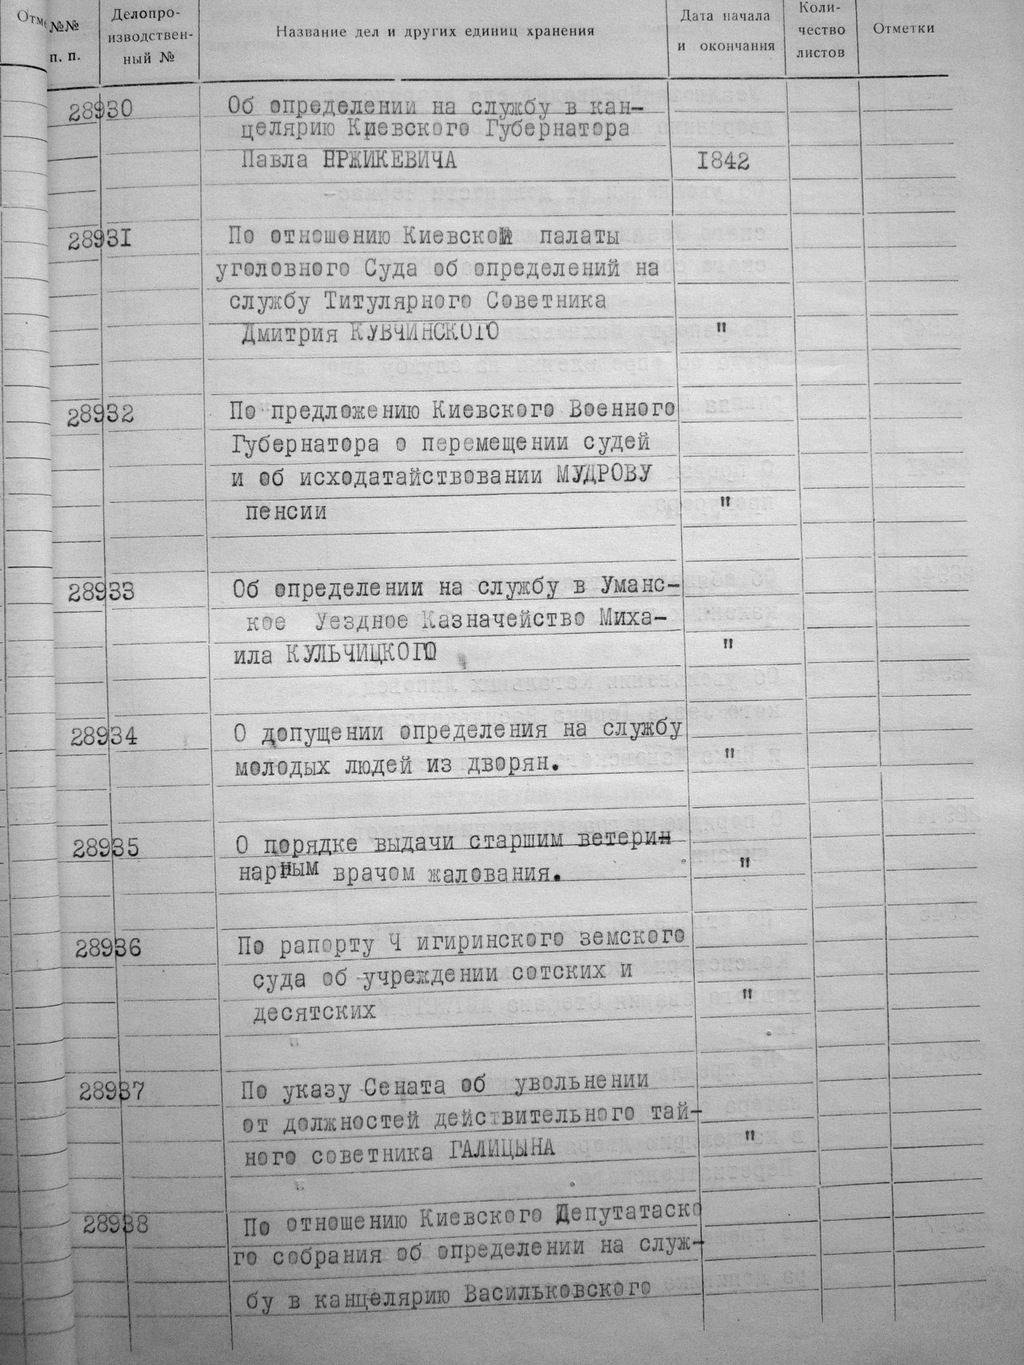 Отм
№№
п. п.
Делопро-
изводствен-
ный №
Название дел и других единиц хранения
Дата начала
и окончания
Коли-
чество
листов
Отметки
28930
Об определении на службу в кан-
целярию Киевского Губернатора
Павла ЕРЖИКЕВИЧА 1842
28931
По отношению Киевской палаты
уголовного Суда об определений на
службу Титулярного Советника
Дмитрия КУВЧИНСКОГО "
28932
По предложению Киевского Военного
Губернатора о перемещении судей
и об исходатайствовании МУДРОВУ
пенсии "
28933
Об определении на службу в Уманс-
кое Уездное Казначейство Миха-
ила КУЛЬЧИЦКОГО "
28934
О допущении определения на службу
молодых людей из дворян. "
28935
О порядке выдачи старшим ветерин
нарным врачом жалования. "
28936
По рапорту Ч игиринского земского
суда об учреждении сотских и
десятских "
"
28937
По указу Сената об увольнении
от должностей действительного тай-
ного советника ГАЛИЦЫНА "
"
28938
По отношению Киевского Депутатаско
го собрания об определении на служ-
бу в канцелярию Васильковского